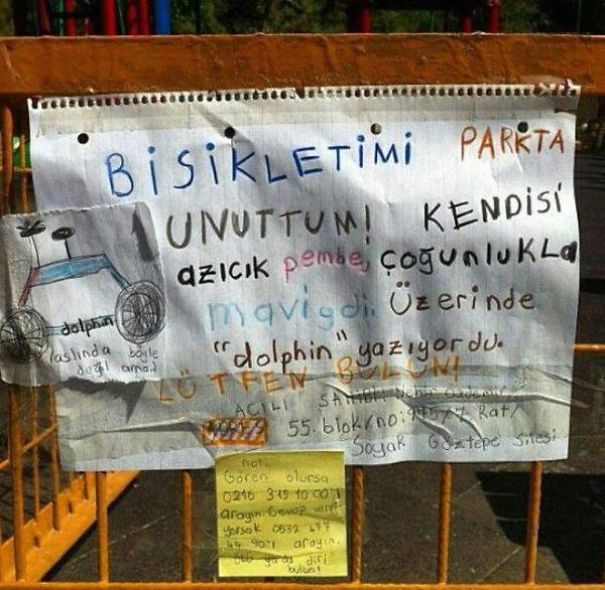 BİSİKLETİMİ PARKTA
UNUTTUM! KENDİSİ
AZICIK pembe, çoğunlukLa
maviydi. Üzerinde
"dolphin" yazıyordu.
LÜTFEN BULUN!
dolphin
aslında böyle
değil ama
ACILI SAHİBİ:
55. blok/no: Kat/
Soyak Göztepe Sitesi
not:
Gören olursa
0216
arayın. Cevap
yorsak 0532 477
arayın.
diri
bulun!